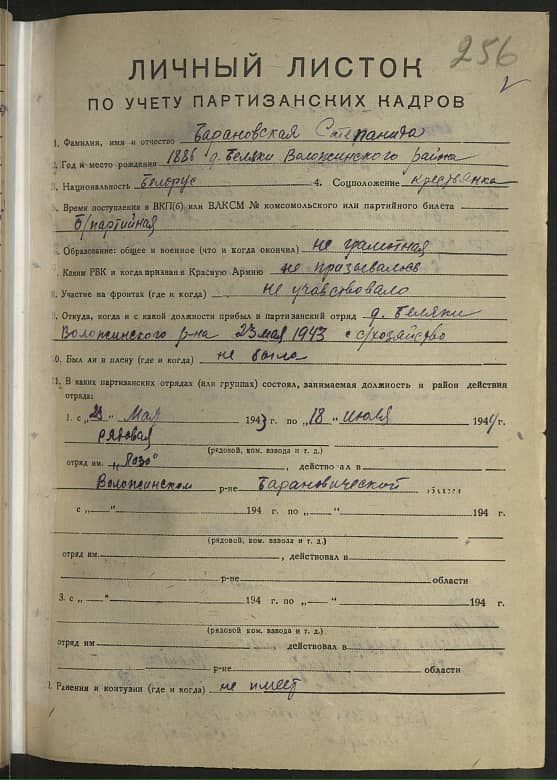 256
ЛИЧНЫЙ ЛИСТОК
ПО УЧЕТУ ПАРТИЗАНСКИХ КАДРОВ
1. Фамилия, имя и отчество Барановская Степанида
2. Год и место рождения 1886 д. Беляки Воложинского района
3. Национальность Белорус 4. Соцположение крестьянка
5. Время поступления в ВКП(б) или ВЛКСМ № комсомольского или партийного билета
б/партийная
6. Образование: общее и военное (что и когда окончил) не грамотная
7. Каким РВК и когда призван в Красную Армию не призывалось
8. Участие на фронтах (где и когда) не участвовало
9. Откуда, когда и с какой должности прибыл в партизанский отряд д. Беляки
Воложинского р-на 23 мая 1943 с с/хозяйство
10. Был ли в плену (где и когда) не была
11. В каких партизанских отрядах (или группах) состоял, занимаемая должность и район действия
отряда:
1. с „23“ Мая 1943 г. по „18“ июля 1944 г.
рядовая
(рядовой, ком. взвода и т. д.)
отряд им. , действовал в
Воложинском р-не Барановической области
с „—“ 194 г. по „—“ 194 г.
(рядовой, ком. взвода и т. д.)
отряд им. , действовал в
р-не области
3. с „—“ 194 г. по „—“ 194 г.
(рядовой, ком. взвода и т. д.)
отряд им. действовал в
р-не области
Ранения и контузии (где и когда) не имеет